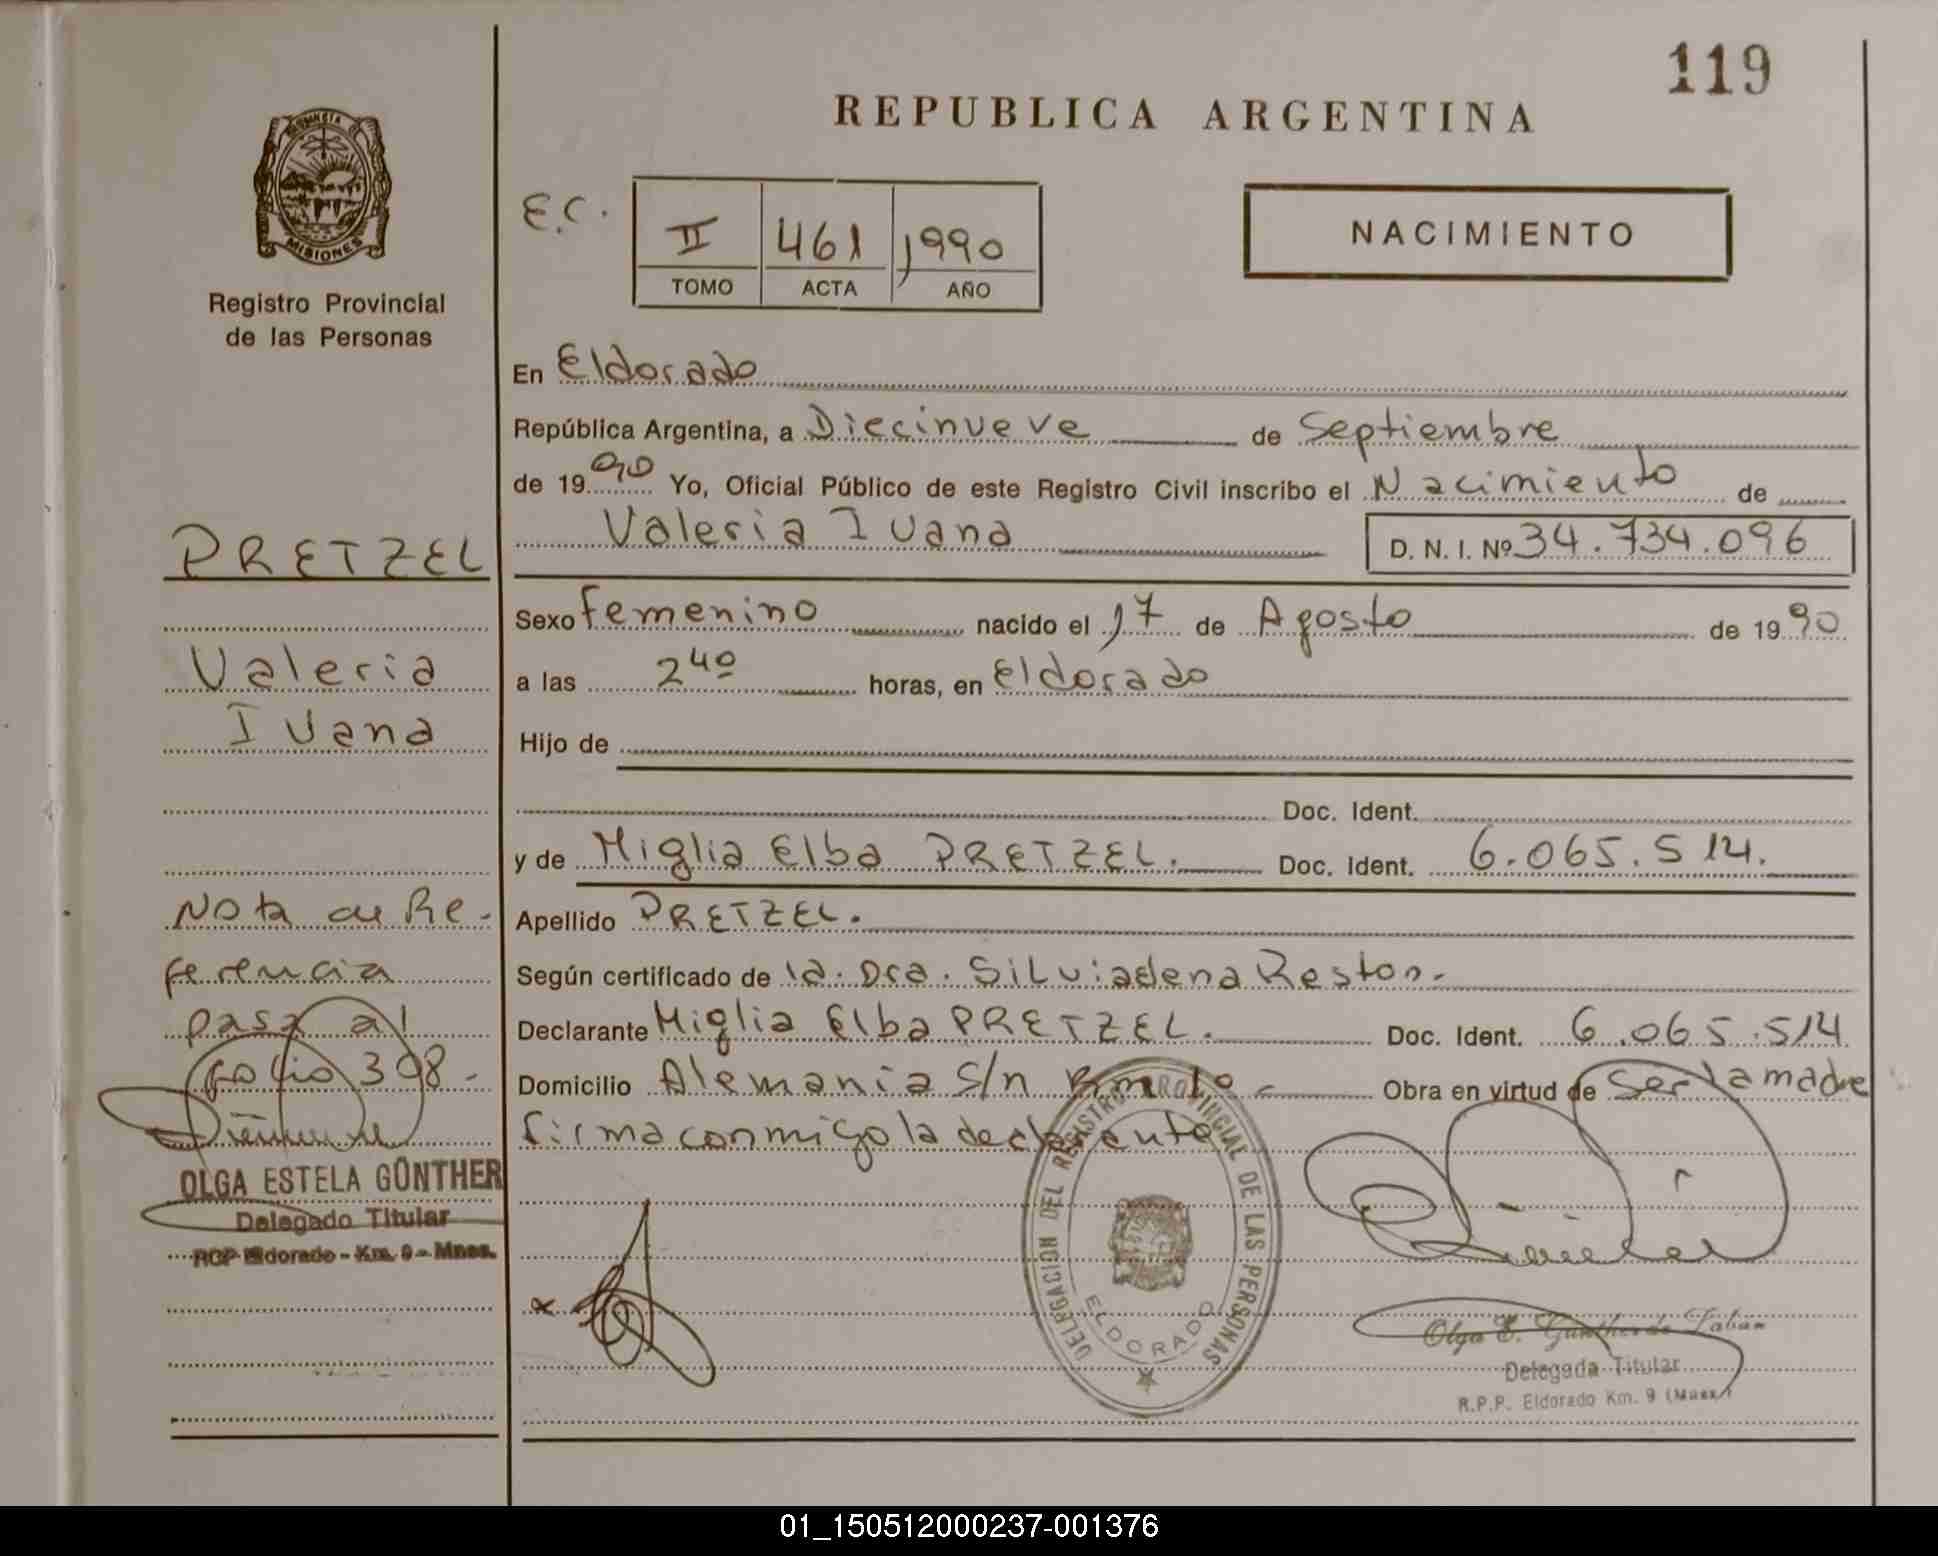 119
REPUBLICA ARGENTINA
PROVINCIA DE
MISIONES
Registro Provincial
de las Personas
E.C.
II 461 1990
TOMO ACTA AÑO
NACIMIENTO
En Eldorado
República Argentina, a Diecinueve de Septiembre
de 1990 Yo, Oficial Público de este Registro Civil inscribo el Nacimiento de
Valeria Ivana D. N. I. Nº 34.734.096
Sexo femenino nacido el 17 de Agosto de 1990
a las 2 40 horas, en Eldorado
Hijo de
Doc. Ident.
y de Miglia Elba PRETZEL. Doc. Ident. 6.065.514.
Apellido PRETZEL.
Según certificado de la. Dra. Silvia Reston.
Declarante Miglia Elba PRETZEL. Doc. Ident. 6.065.514
Domicilio Alemania s/n Obra en virtud de ser la madre
firma conmigo la declarante
PRETZEL
Valeria
Ivana
Nota de Re-
ferencia
pasa al
folio 398-
OLGA ESTELA GÜNTHER
Delegado Titular
RCP Eldorado - Km. 9 - Mnes.
DELEGACION DEL REGISTRO PROVINCIAL DE LAS PERSONAS
ELDORADO
Olga E. Günther de
Delegada Titular
R.P.P. Eldorado Km. 9 (Mnes.)
01_150512000237-001376